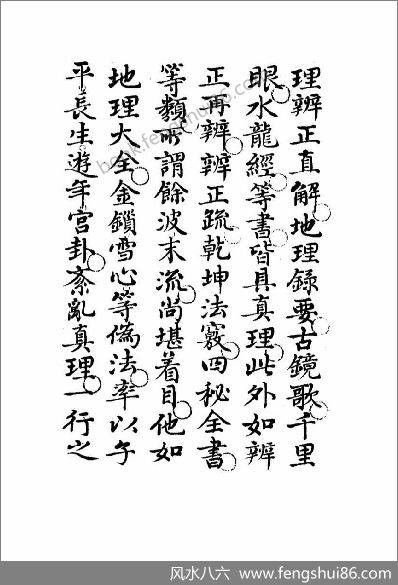 理辨正直解地理錄要古鏡歌千里
眼水龍經等書皆具真理此外如辨
正再辨辨正疏乾坤法竅四秘全書
等類所謂餘波末流尚堪着目他如
地理大全金鎖雪心等偽法率以子
平長生遊年宮卦紊亂真理一行之
风水八六 www.fengshui86.com